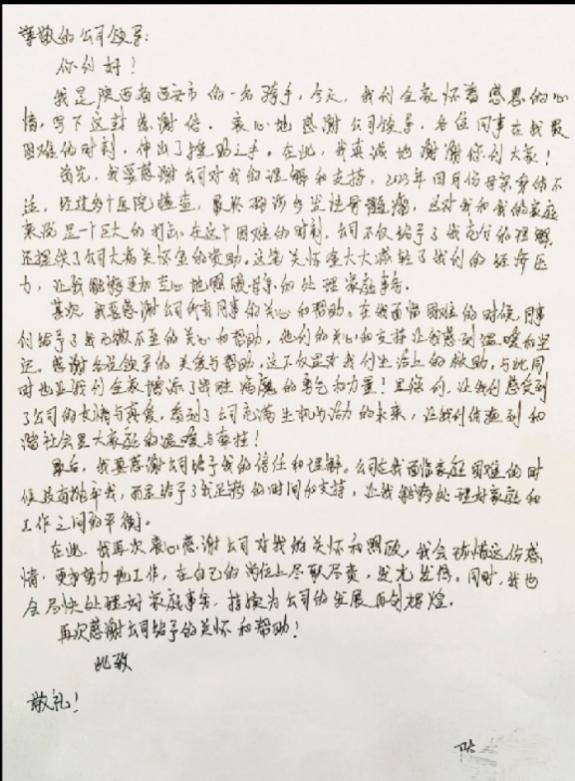 尊敬的公司领导:
你们好!
我是陕西省西安市的一名骑手,今天,我们全家怀着感恩的心
情,写下这封感谢信。衷心地感谢公司领导,各位同事在我最
困难的时刻,伸出了援助之手。在此,我真诚地谢谢你们大家!
首先,我要感谢公司对我的理解和支持,2023年四月份母亲身体不
适,经过多个医院检查,最终确诊多发性骨髓瘤,这对我和我的家庭
来说是一个巨大的打击。在这个困难的时刻,公司不仅给予了我充分的理解,
还提供了公司大病关怀金的资助。这笔关怀金大大减轻了我们的经济压
力,让我能够更加安心地照顾母亲的处理家庭事务。
其次,我要感谢公司所有同事的关心和帮助。在我面临困难的时候,同事
们给予了我无微不至的关心和帮助,他们的关心和支持让我感到温暖和坚
定。感谢各位领导的关爱与帮助,这不仅是对我们生活上的救助,与此同
时也让我们全家增添了战胜病魔的勇气和力量!是你们,让我们感受到
了公司的真情与真爱,看到了公司充满生机与活力的未来,让我们体验到和
谐社会是大家庭的温暖与幸福!
最后,我要感谢公司给予我的信任和理解。公司在我面临家庭困难的时
候没有抛弃我,而是给予了我足够的时间和支持,让我能够处理好家庭和
工作之间的平衡。
在此,我再次衷心感谢公司对我的关怀和照顾。我会珍惜这份感
情,更加努力地工作,在自己的岗位上尽职尽责,发光发热。同时,我也
会尽快处理好家庭事务,继续为公司的发展再创辉煌。
再次感谢公司给予的关怀和帮助!
此致
敬礼!